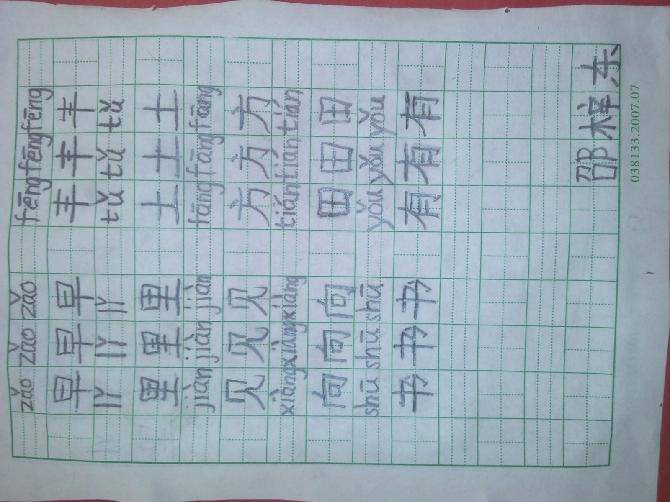 zǎo zǎo zǎo fēng fēng fēng
早 早 早 丰 丰 丰
lǐ lǐ lǐ tǔ tǔ tǔ
里 里 里 土 土 土
jiàn jiàn jiàn fāng fāng fāng
见 见 见 方 方 方
xiàng xiàng xiàng tián tián tián
向 向 向 田 田 田
shū shū shū yǒu yǒu yǒu
书 书 书 有 有 有
邵梓东
038133.2007.07